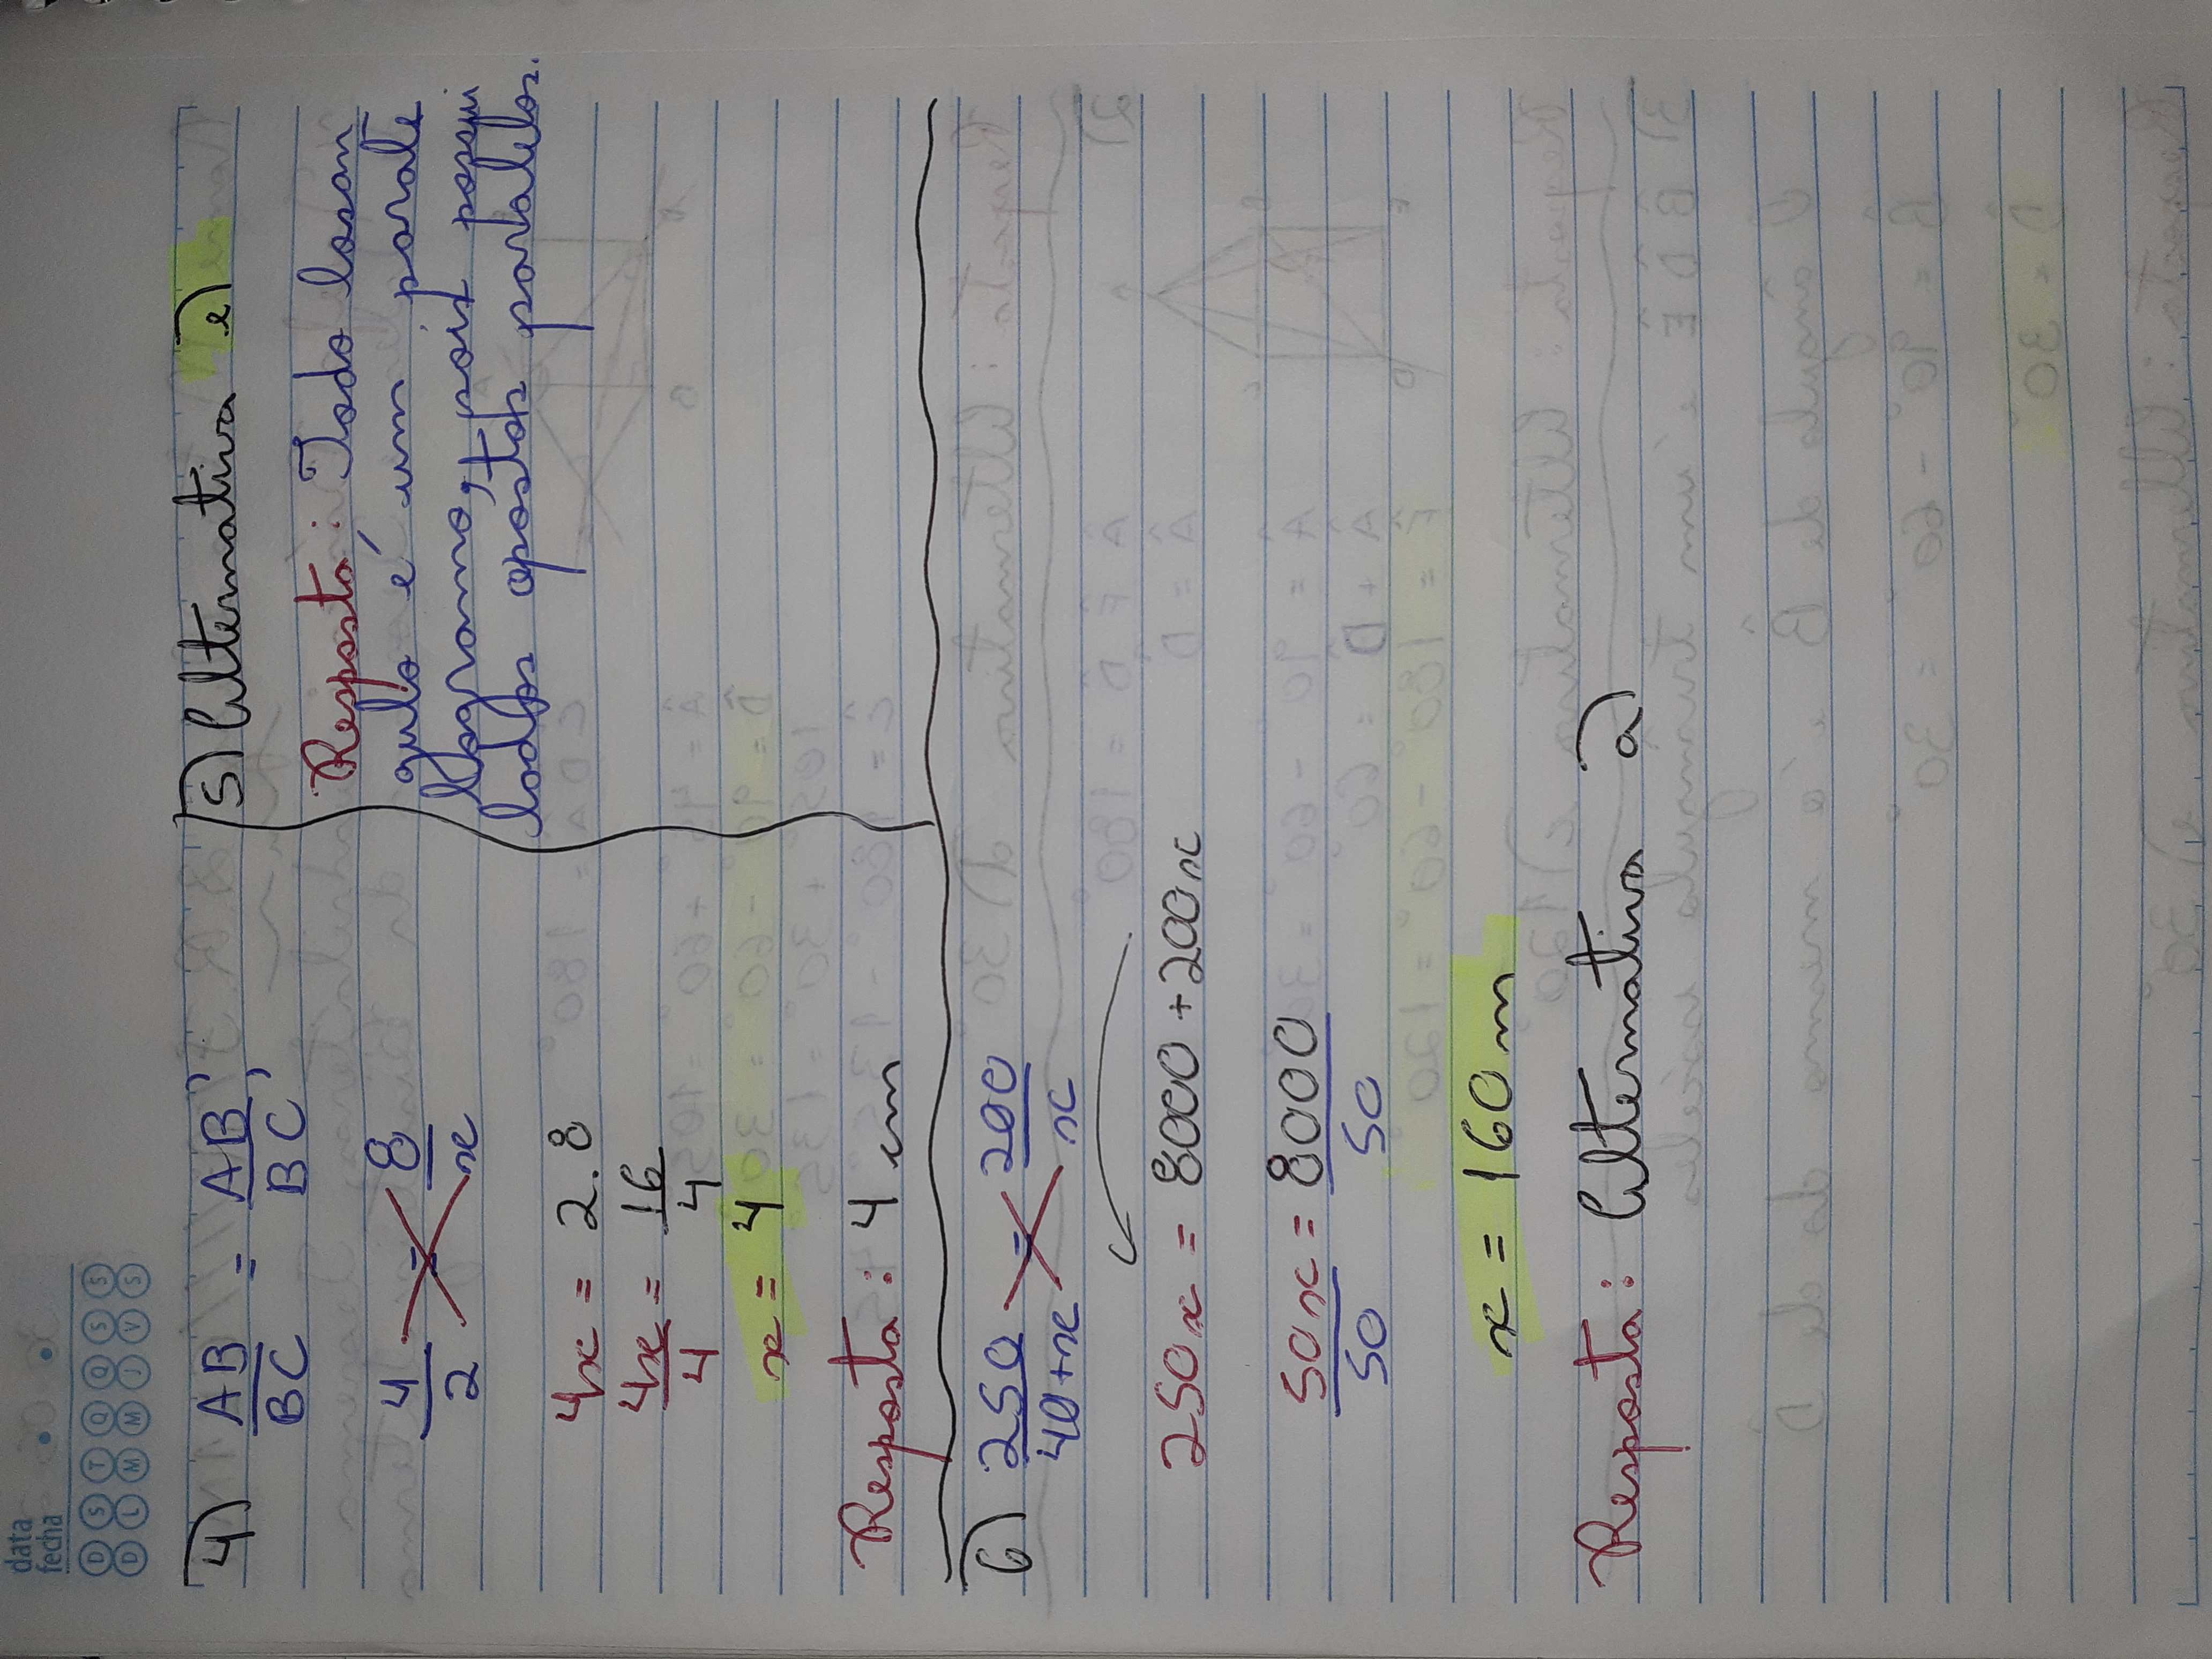 data
fecha
D S T Q Q S S
D L M M J V S
4) AB/BC = AB'/BC'
4/2 = 8/x
4x = 2.8
4x/4 = 16/4
x = 4
Resposta: 4 cm
5) Alternativa e)
Resposta: Todo losan
gulo é um parale
logramo, pois possui
lados opostos paralelos.
6) 250/40+x = 200/x
250x = 8000 + 200x
50x/50 = 8000/50
x = 160 m
Resposta: Alternativa a)